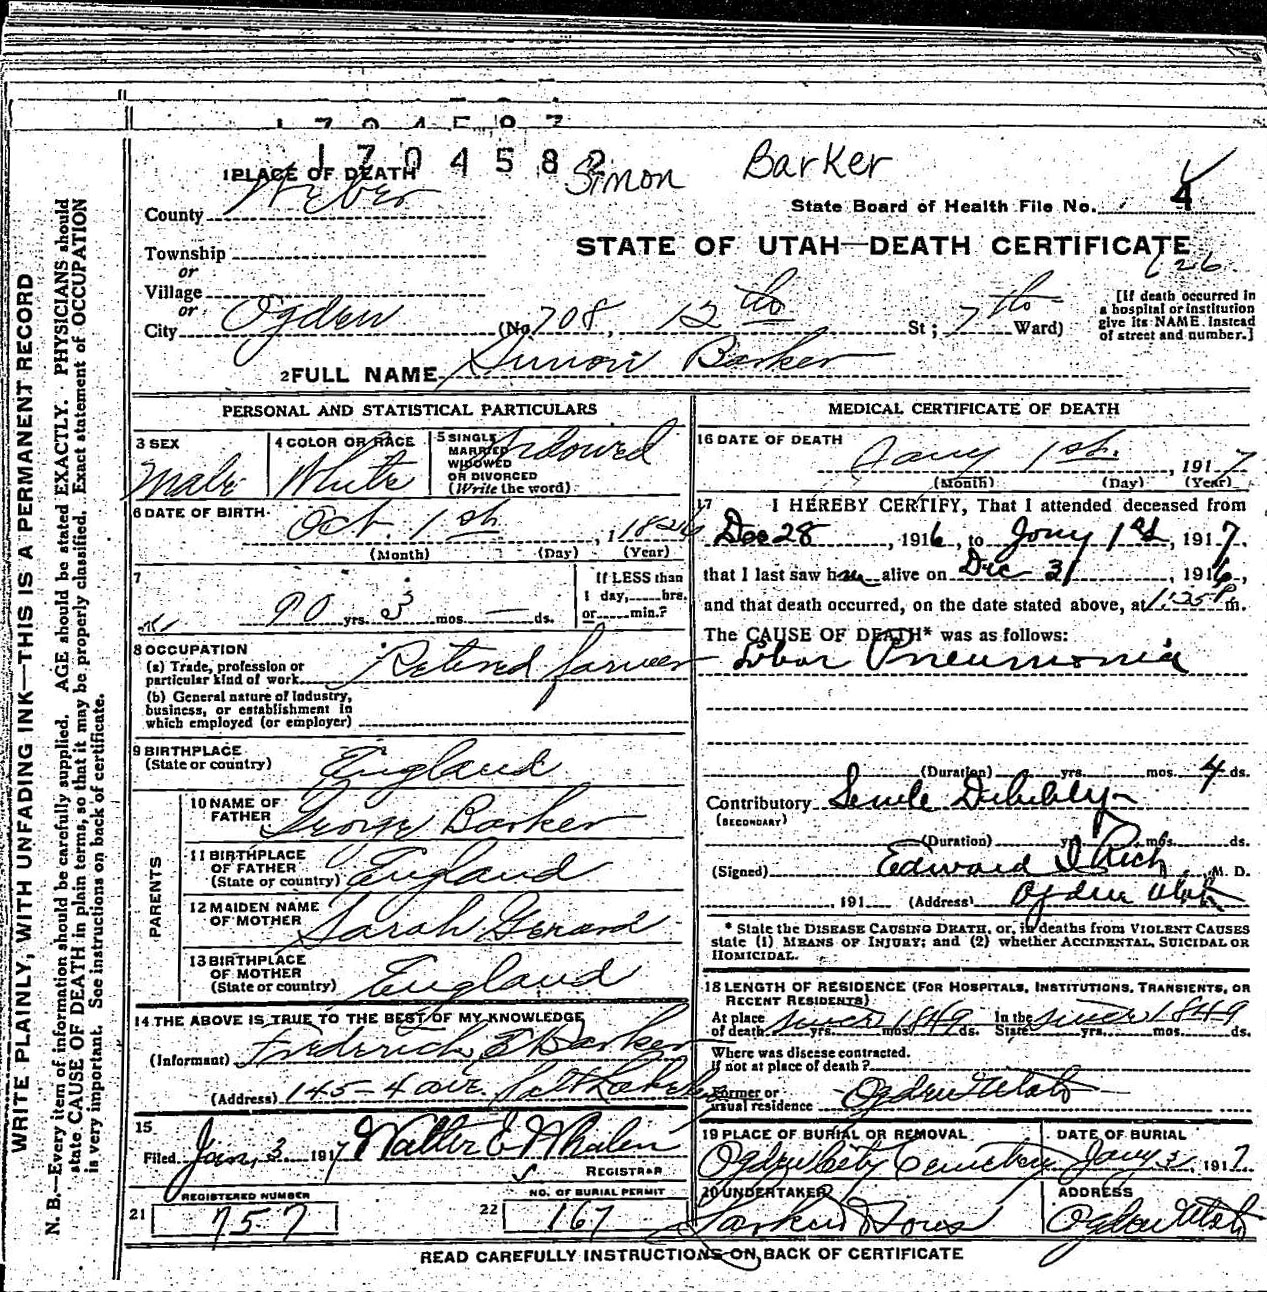 1704583
1704582
Simon Barker
1 PLACE OF DEATH
County Weber
State Board of Health File No. 4
Township
or
STATE OF UTAH—DEATH CERTIFICATE
626
Village
or
City Ogden (No. 708, 12th St; 7th Ward)
[If death occurred in
a hospital or institution
give its NAME instead
of street and number.]
2 FULL NAME Simon Barker
PERSONAL AND STATISTICAL PARTICULARS
3 SEX
Male
4 COLOR OR RACE
White
5 SINGLE
MARRIED
WIDOWED
OR DIVORCED
(Write the word)
Widowed
6 DATE OF BIRTH
Oct. 1st, 1826
(Month) (Day) (Year)
7
90 yrs. 3 mos. — ds.
If LESS than
1 day, hrs.
or min.?
8 OCCUPATION
(a) Trade, profession or
particular kind of work Retired farmer
(b) General nature of Industry,
business, or establishment in
which employed (or employer)
9 BIRTHPLACE
(State or country) England
PARENTS
10 NAME OF
FATHER George Barker
11 BIRTHPLACE
OF FATHER
(State or country) England
12 MAIDEN NAME
OF MOTHER Sarah Gerard
13 BIRTHPLACE
OF MOTHER
(State or country) England
14 THE ABOVE IS TRUE TO THE BEST OF MY KNOWLEDGE
(Informant) Frederick E Barker
(Address) 145-4 ave. Salt Lake
15
Filed Jan, 3 1917 Walter E Whalen
REGISTRAR
REGISTERED NUMBER
21 757
NO. OF BURIAL PERMIT
22 167
MEDICAL CERTIFICATE OF DEATH
16 DATE OF DEATH
Jany 1st., 1917
(Month) (Day) (Year)
17 I HEREBY CERTIFY, That I attended deceased from
Dec 28, 1916, to Jany 1st, 1917,
that I last saw him alive on Dec 31, 1916,
and that death occurred, on the date stated above, at 1:25 P m.
The CAUSE OF DEATH* was as follows:
Lobar Pneumonia
(Duration) yrs. mos. 4 ds.
Contributory Senile Debility
(SECONDARY)
(Duration) yrs. mos. ds.
(Signed) Edward I Rich, M. D.
, 191 (Address) Ogden Utah
* State the DISEASE CAUSING DEATH, or, in deaths from VIOLENT CAUSES
state (1) MEANS OF INJURY; and (2) whether ACCIDENTAL, SUICIDAL OR
HOMICIDAL.
18 LENGTH OF RESIDENCE (FOR HOSPITALS, INSTITUTIONS, TRANSIENTS, OR
RECENT RESIDENTS)
At place
of death since yrs. 1849 mos. ds. In the
State since yrs. 1849 mos. ds.
Where was disease contracted.
If not at place of death?
Former or
usual residence Ogden Utah
19 PLACE OF BURIAL OR REMOVAL
Ogden City Cemetery
DATE OF BURIAL
Jany 3, 1917
20 UNDERTAKER
Larkin & Sons
ADDRESS
Ogden Utah
READ CAREFULLY INSTRUCTIONS ON BACK OF CERTIFICATE
WRITE PLAINLY, WITH UNFADING INK—THIS IS A PERMANENT RECORD
N. B.—Every item of information should be carefully supplied. AGE should be stated EXACTLY. PHYSICIANS should
state CAUSE OF DEATH in plain terms, so that it may be properly classified. Exact statement of OCCUPATION
is very important. See instructions on back of certificate.